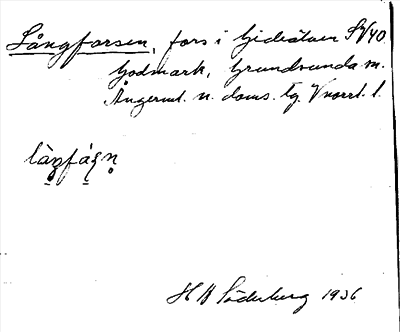 Långforsen, fors i Gideälven SV40
Godmark, Grundsunda sn.
Ångerml. n. doms. tg. Vnorrl. l.
làŋfáʂn̥
H B Söderberg 1936